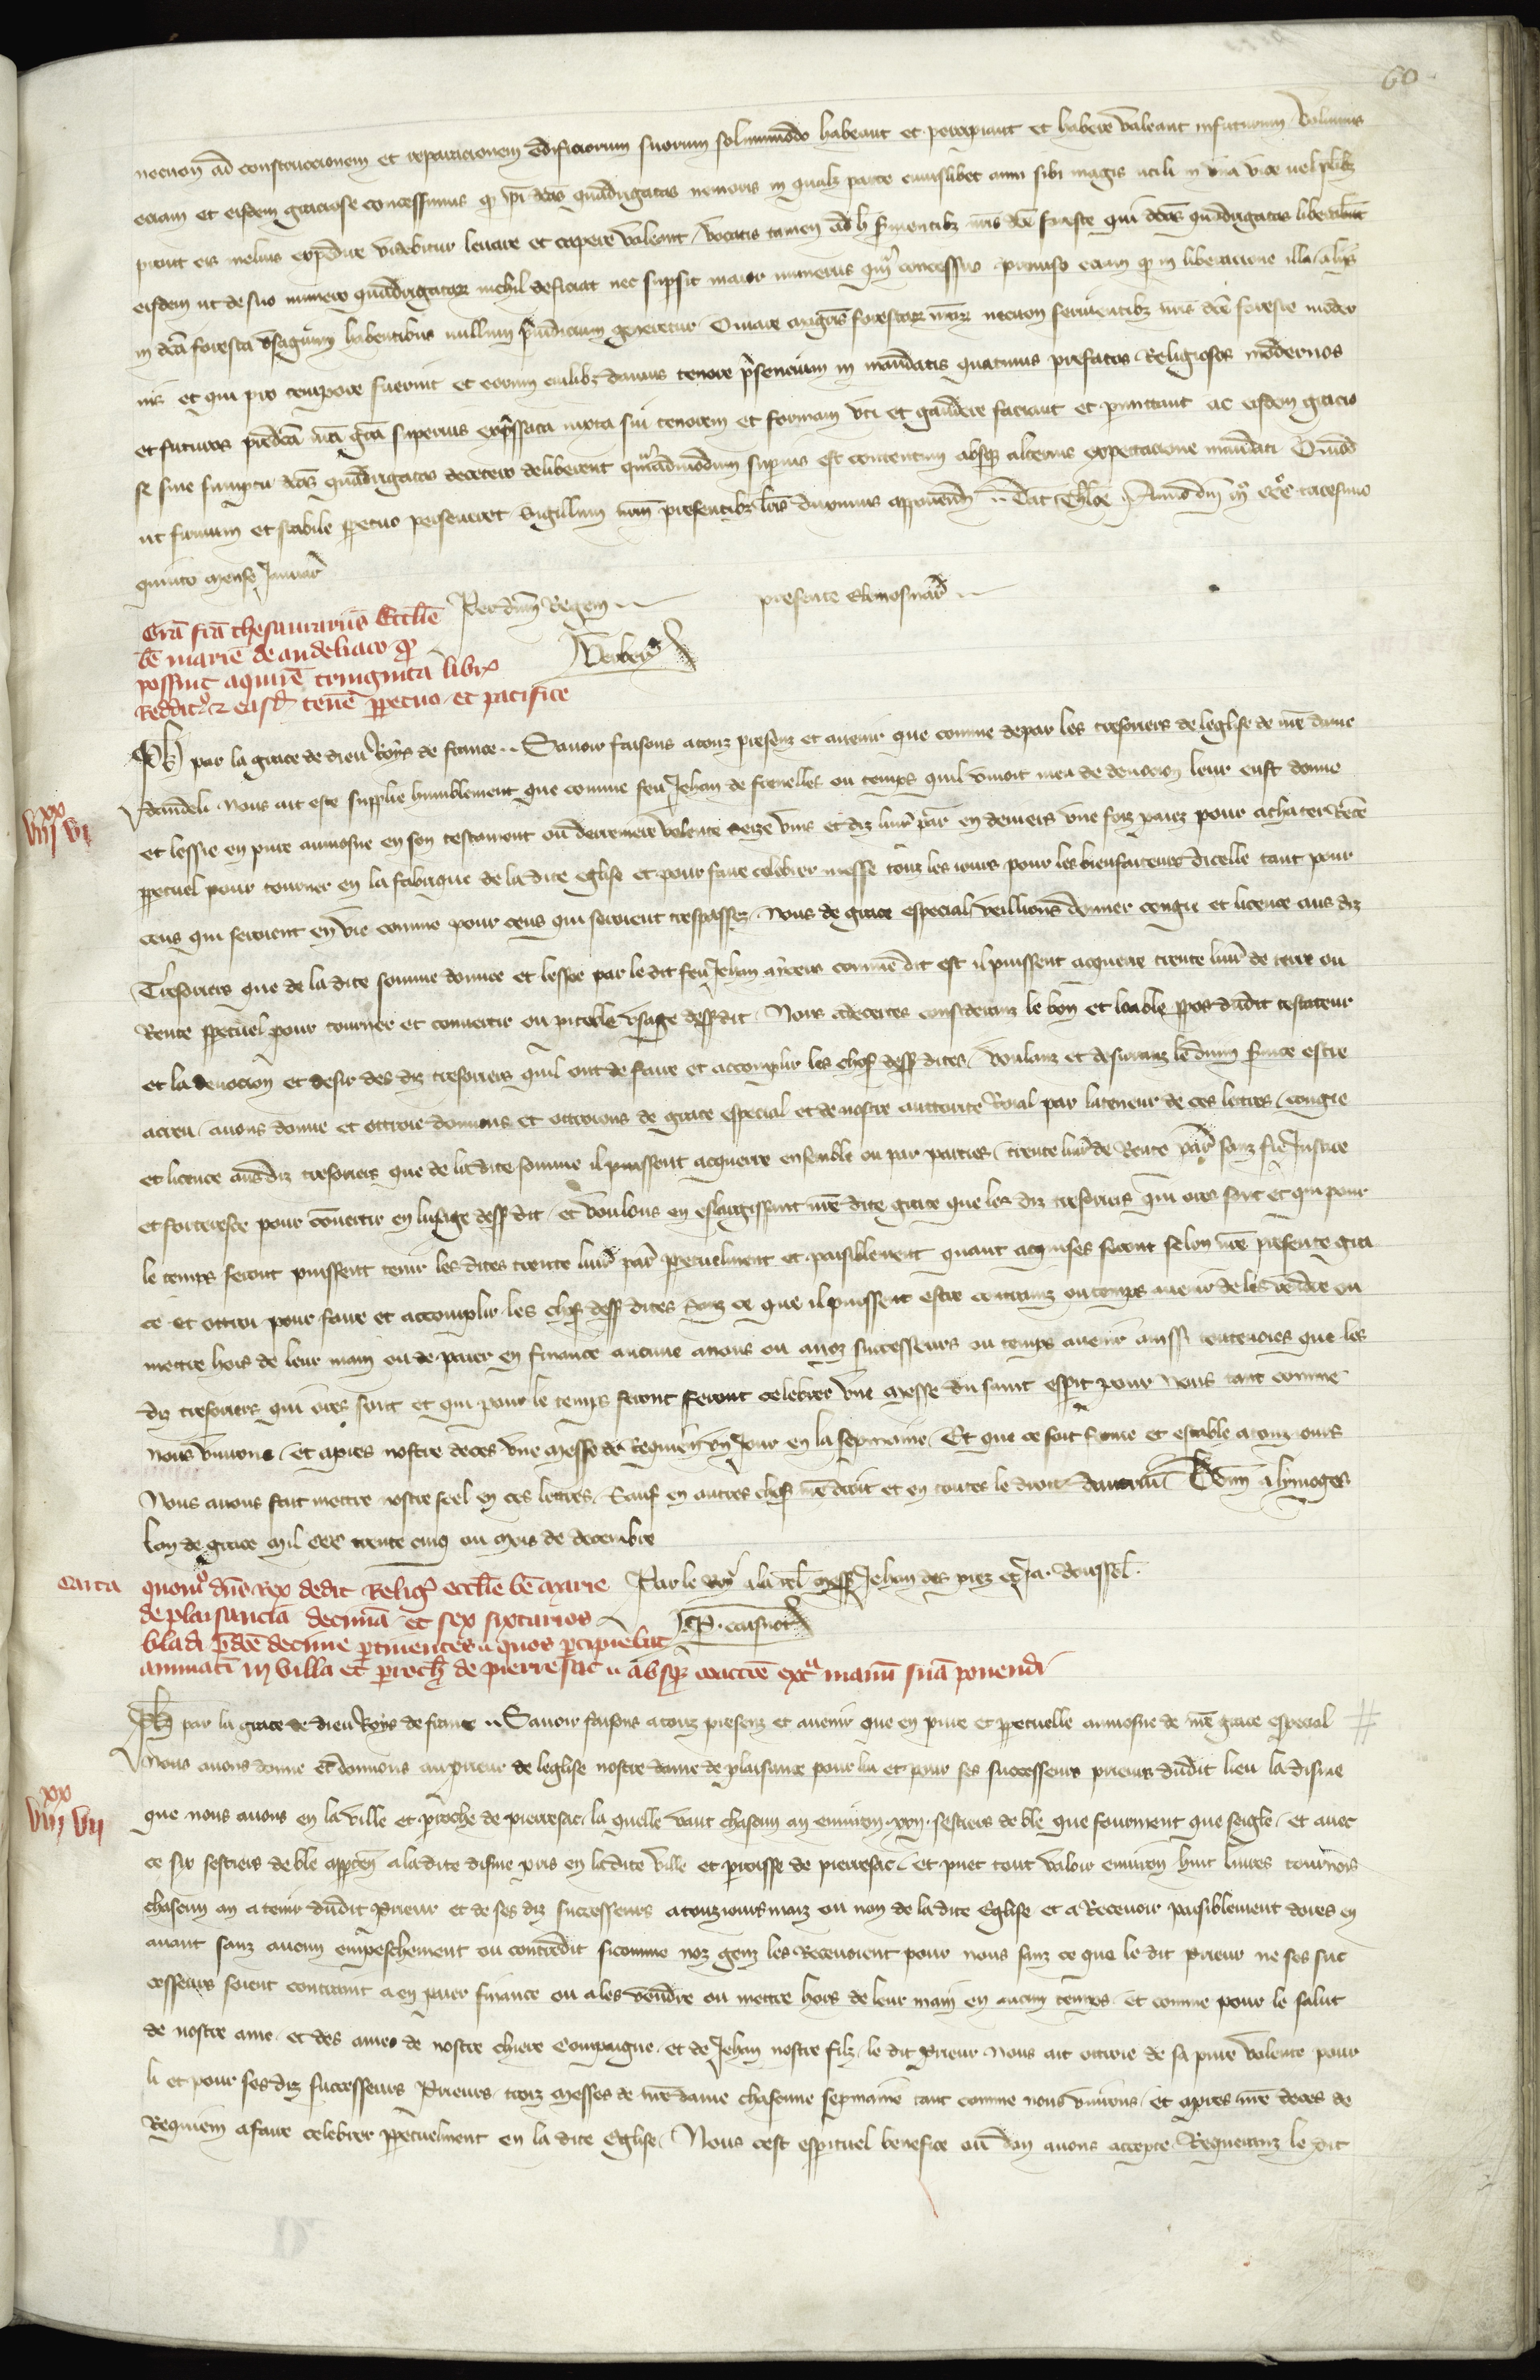 60
necnon ad construccionem et reparacionem edificiorum suorum solummodo habeant et percipiant et habere valeant infuturum Volumus
eciam et eisdem graciose concessimus qd ipi dcas quadrigatas nemoris in qualz parte cuiuslibet anni sibi magis utili in una vice uel plibz
prout eis melius expedire videbitur leuare et capere valeant vocatis tamen ad h seruientibz nris dce foreste qui dcas quadrigatas liberabunt
eisdem ut de suo numero quadrigatar nichil deficiat nec supsit maior numerus qm concessus prouiso eciam qd in liberacione illa aliis
in dca foresta usagium habentibus nullum preiudicium generetur Quare magris forestar nrar necnon seruientibz nris dce foreste moder
nis et qui pro tempore fuerint et eorum cuilibz damus tenore presencium in mandatis quatinus prefatos Religiosos modernos
et futuros predca nra gra superius expressata iuxta sui tenorem et formam uti et gaudere faciant et permittant ac eisdem gracio
se sine sumptu dcas quadrigatas decetero deliberent quemadmodum superius est contentum absque alterius expectacione mandati Quod
ut firmum et stabile perpetuo perseueret Sigillum nrm presentibz lris duximus apponend Dat Anno dni m ccc tricesimo
quinto mense Januar
Per dnm Regem presente Elemosinar
Verber
Gra fca thesaurariis Ecclie
be marie de andeliaco qd
possint aquire triginta libr
Reddit et easd tene perpetuo et pacifice
Ph par la grace de dieu Roys de france Sauoir faisons a touz presenz et auenir que comme depar les tresoriers de leglise de nre dame
dandeli nous ait este supplie humblement que comme feu Jehan de frenelles ou temps quil viuoit meu de deuocion leur eust donne
xx
vii vi
et lessie en pure aumosne en son testament ou derreniere volente seize vins et diz liur par en deniers une foiz paiez pour achater Rente
perpetuel pour tourner en la fabrique de la dite eglise et pour faire celebrer messe touz les iours pour les bienfaiteurs dicelle tant pour
ceus qui seroient en vie comme pour ceus qui seroient trespassez Nous de grace especial veillions donner congie et licence aus diz
Tresoriers que de la dite somme donnee et lessee par le dit feu Jehan a iceus comme dit est il puissent acquerre trente liur de terre ou
Rente perpetuel pour tourner et conuertir ou piteable usage dess dit Nous adecertes considerans le bon et loable ppos dudit testateur
et la deuocion et desir des diz tresoriers quil ont de faire et acomplir les chos dess dites voulanz et desiranz le diuin seruice estre
acreu auons donne et ottroie donnons et ottroions de grace especial et de nostre auttorite Roial par la teneur de ces lettres congie
et licence ausdiz tresoriers que de la dite somme il puissent acquerre ensemble ou par parties trente liur de Rente par sanz fie Justice
et forteresce pour conuertir en lusage dess dit et voulons en eslargissant nre dite grace que les diz tresoriers qui ores sont et qui pour
le temps seront puissent tenir les dites trente liur par perpetuelment et paisiblement quant acquises seront selon nre presente gra
ce et ottroi pour faire et accomplir les chos dess dites sanz ce que il puissent estre contrainz ou temps auenir de les vendre ou
mettre hors de leur main ou de paier en finance aucune a nous ou a noz successeurs ou temps auenir ainssi toutevoies que les
diz tresoriers qui ores sont et qui pour le temps seront feront celebrer une messe du saint esprit pour nous tant comme
nous viurons et apres nostre deces une messe de Requiem un Jour en la sepmaine Et que ce soit ferme et estable a touz iours
Nous auons fait mettre nostre seel en ces lettres Sauf en autres chos nre droit et en toutes le droit dautrui Donn a lymoges
lan de grace mil ccc trente cinq ou mois de decembre
Par le roy a la rel mess Jehan des prez et Ja. Boussel
P. caisnot
Carta quomo dns Rex dedit Religi ecclie be marie
de plaisancia decima et sex sixtarios
bladi pdce decime pertinentes quos percipiebat
annuati in villa et proch de pierresac absq coaccoe extra manu sua ponendi
Ph par la grace de dieu Roys de france Sauoir faisons a touz presenz et auenir que en pure et perpetuelle aumosne de nre grace especial
Nous auons donne et donnons au prieur de leglise nostre dame de plaisance pour lui et pour ses successeurs prieurs dudit lieu la disme
xx
vii vii
que nous auons en la ville et proche de pierresac la quelle vaut chascun an enuiron xvi sestiers de ble que fourment que seigle et auec
ce six sestiers de ble apparten a la dite disme pris en la dite ville et paroisse de pierresac et puet tout valoir enuiron huit liures tournois
chascun an a tenir dudit Prieur et de ses diz successeurs a touz iours maiz ou non de la dite Eglise et a Receuoir paisiblement dores en
auant sanz aucun empeschement ou contredit sicomme noz genz les Receuoient pour nous sanz ce que le dit Prieur ne ses suc
cesseurs soient contraint a en paier finance ou a les vendre ou mettre hors de leur main en aucun temps et comme pour le salut
de nostre ame et des ames de nostre chiere Compaigne et de Jehan nostre filz le dit Prieur nous ait ottroie de sa pure volente pour
li et pour ses diz successeurs Prieurs trois messes de nre dame chascune sepmaine tant comme nous viurons et apres nre deces de
Requiem a faire celebrer perpetuelment en la dite Eglise Nous cest espirituel benefice ou don auons accepte Requeranz le dit